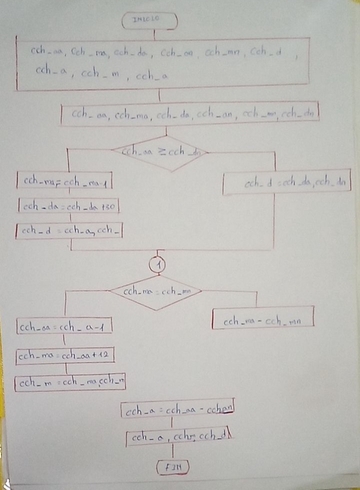 INICIO
cch_aa, cch_ma, cch_da, cch_an, cch_mn, cch_d,
cch_a, cch_m, cch_a
cch_aa, cch_ma, cch_da, cch_an, cch_mn, cch_dn
cch_aa ≥ cch_d
cch_ma = cch_ma-1
cch_d = cch_da, cch_dn
cch_da = cch_da +30
cch_d = cch_a, cch_
1
cch_ma = cch_m
cch_aa = cch_a-1
cch_ma - cch_mn
cch_ma = cch_aa+12
cch_m = cch_ma, cch_m
cch_a = cch_aa - cchan
cch_a, cchm, cch_d
FIN